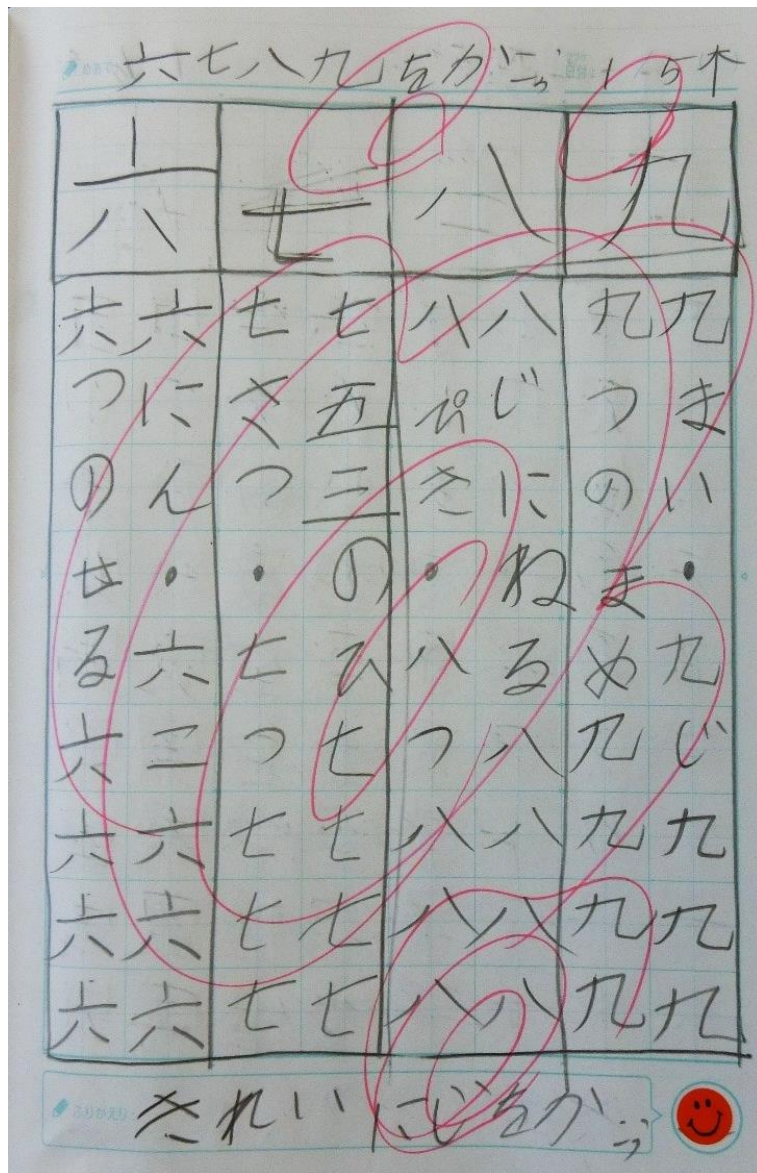 六七八九をかこう 1 5 木
九
九まい・九じ九九九
九つのまめ九九九九
八
八じにねる八八八八
八ぴき・八つ八八八
七
七五三のひ七七七七
七さつ・七つ七七七
六
六にん・六二六六六
六つのせる六六六六
きれいにじをかこう